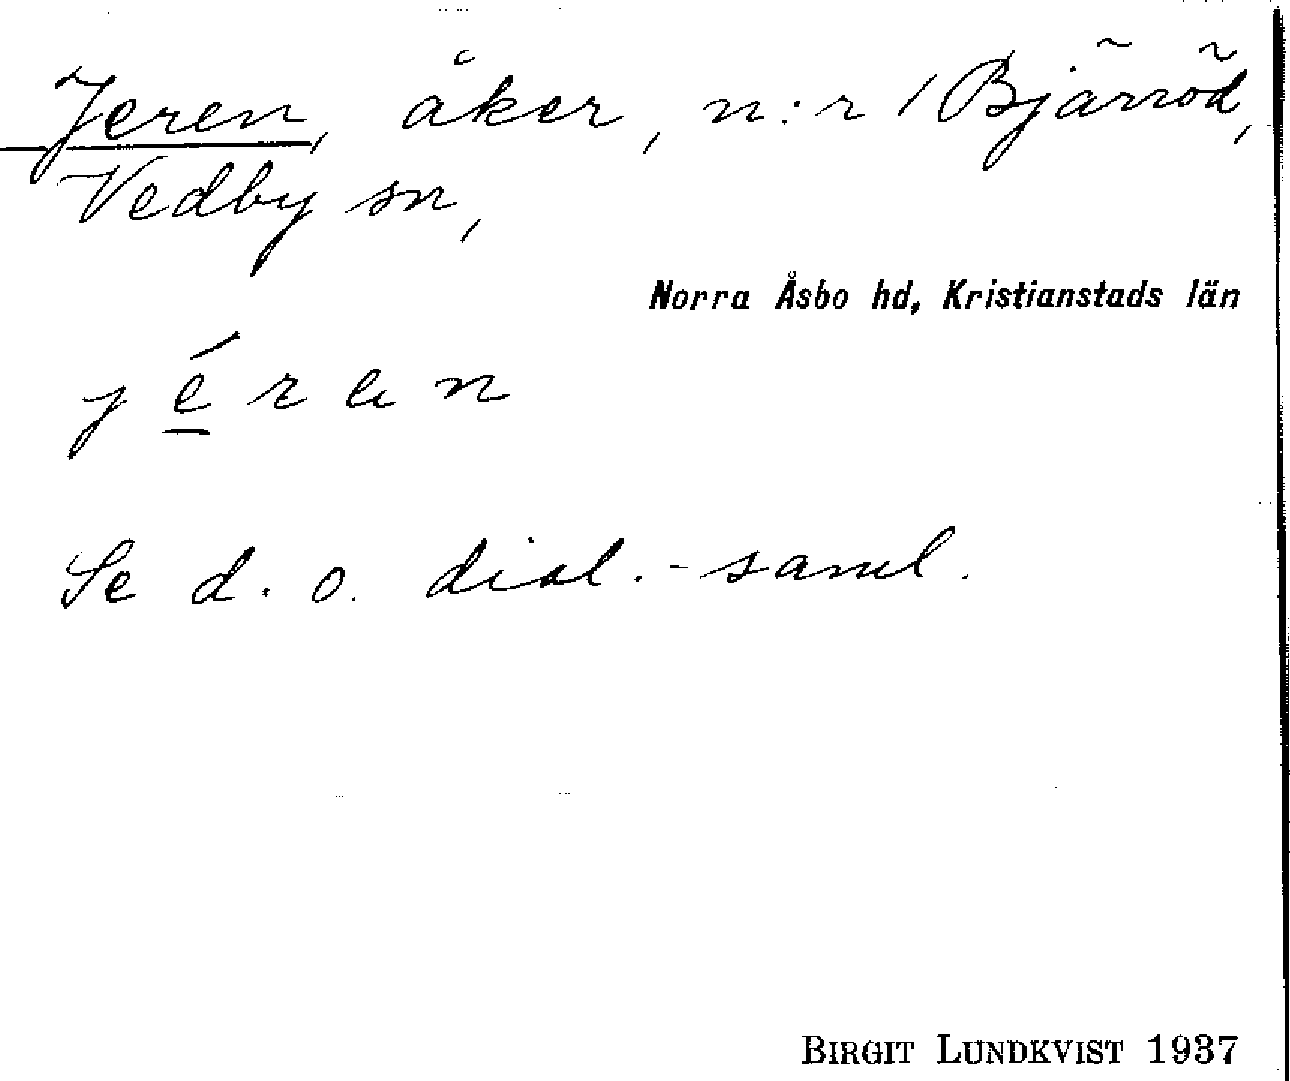 Jeren, åker, n:r 1 Bjärröd,
Vedby sn,
Norra Åsbo hd, Kristianstads län
Se d. o. dial.-saml.
BIRGIT LUNDKVIST 1937